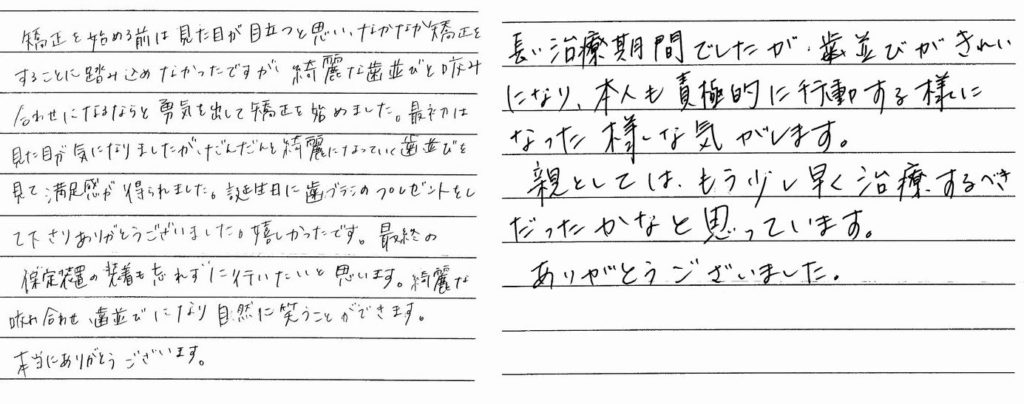 矯正を始める前は見た目が目立つと思い、なかなか矯正を
することに踏み込めなかったですが、綺麗な歯並びと咬み
合わせになるならと勇気を出して矯正を始めました。最初は
見た目が気になりましたが、だんだんと綺麗になっていく歯並びを
見て満足感が得られました。誕生日に歯ブラシのプレゼントをし
て下さりありがとうございました。嬉しかったです。最終の
保定装置の装着も忘れずに行いたいと思います。綺麗な
咬み合わせ、歯並びになり自然に笑うことができます。
本当にありがとうございます。
長い治療期間でしたが、歯並びがきれい
になり、本人も責極的に行動する様に
なった様な気がします。
親としては、もう少し早く治療するべき
だったかなと思っています。
ありがとうございました。